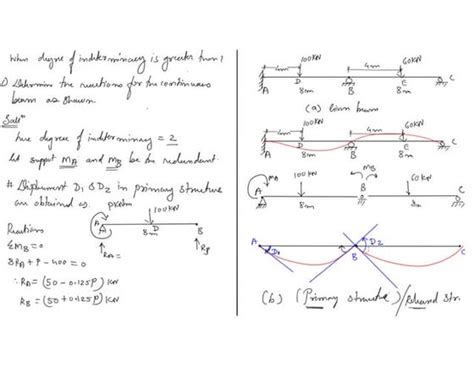 When degree of indeterminacy is greater than 1
1) Determine the reactions for the continuous
beam as shown
Soln
here degree of indeterminacy = 2
let support MA and MB be the redundant.
# Displacement D1 & D2 in primary structure
are obtained as
100KN
A
8m
D
B
RA=
RB
Reactions
ΣMB=0
8RA + P - 400 = 0
∴ RA = (50 - 0.125P) KN
RB = (50 + 0.125P) KN
100KN
60KN
4m
4m
A
D
8m
B
E
8m
C
(a)
beam
100KN
60KN
4m
4m
A
D
8m
B
E
8m
C
MB
A
100KN
B
60KN
C
8m
8m
A
D1
D2
B
C
(b) (Primary structure)/